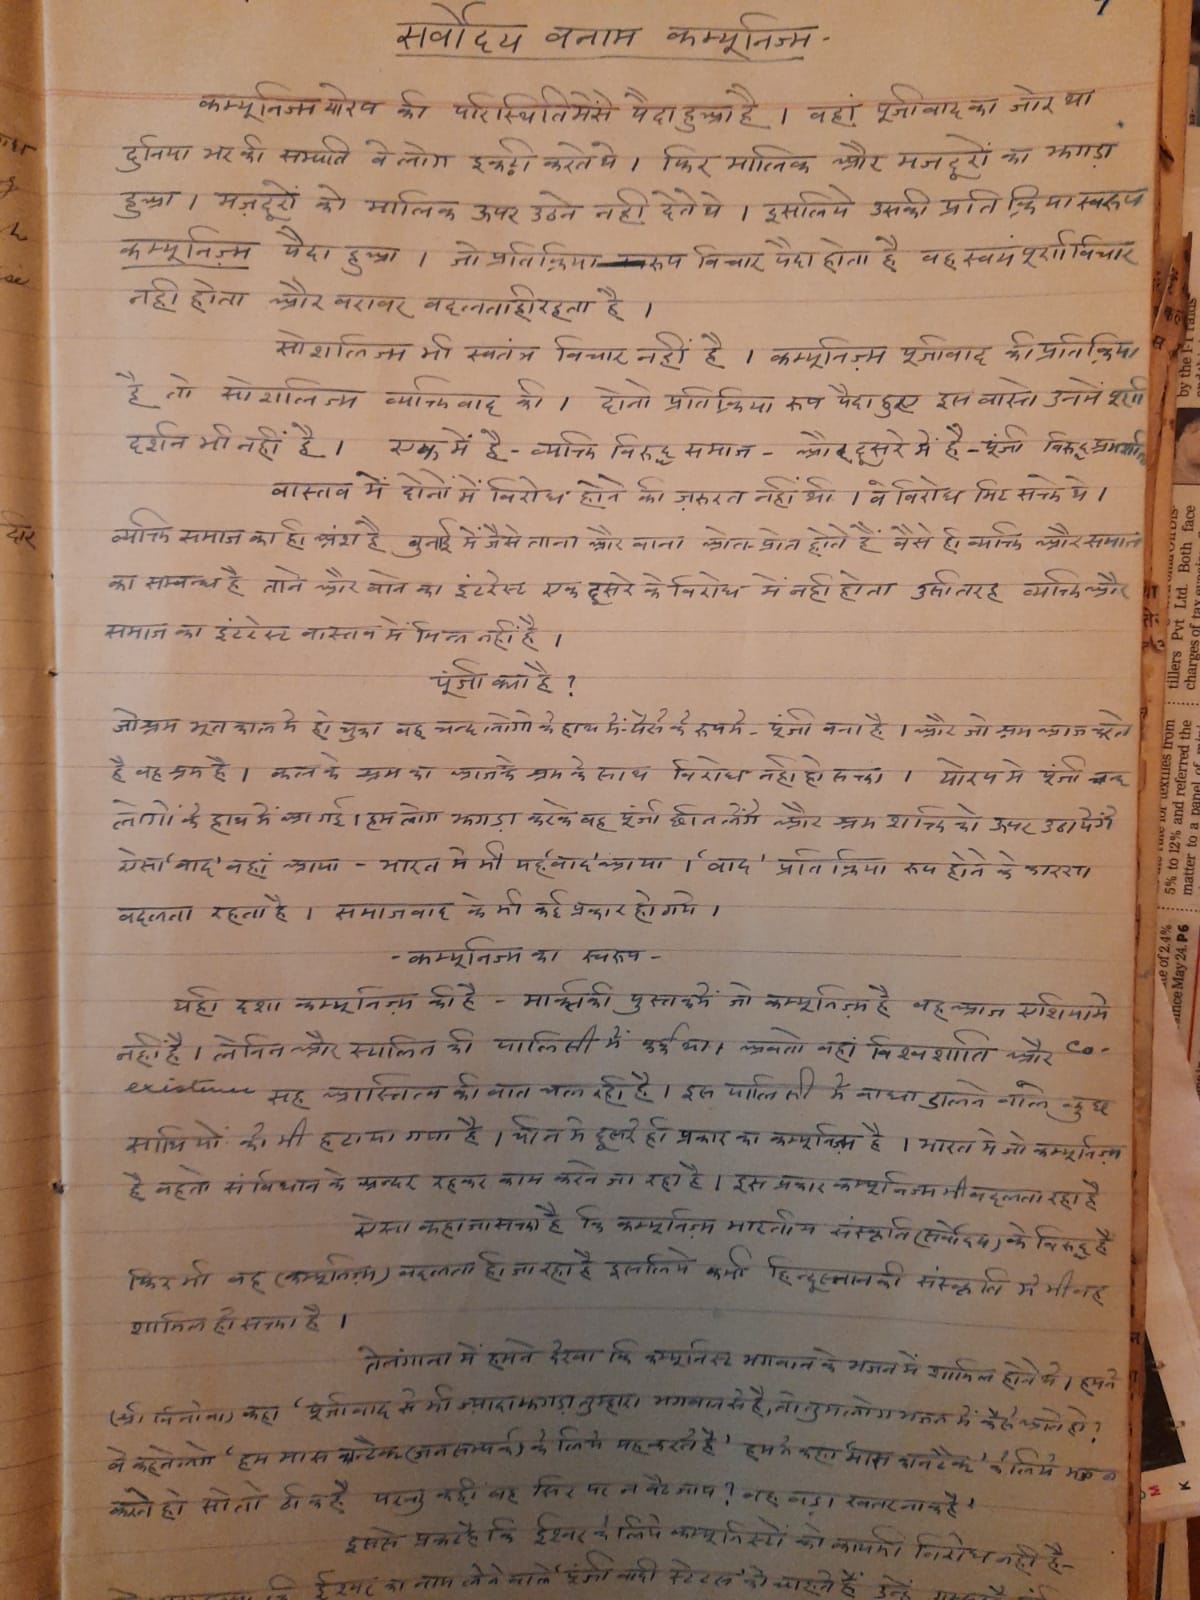 सर्वोदय बनाम कम्यूनिज्म -
कम्यूनिज्म योरप की परिस्थिति में से पैदा हुआ है । वहां पूंजीवाद का जोर था
दुनिया भर की सम्पत्ति वे लोग इकट्ठी करते थे । फिर मालिक और मजदूरों का झगड़ा
हुआ । मज़दूरों को मालिक ऊपर उठने नहीं देते थे । इसलिये उसकी प्रति क्रिया स्वरूप
कम्यूनिज़्म पैदा हुआ । जो प्रतिक्रिया रूप विचार पैदा होता है वह स्वयं पूर्ण विचार
नही होता और बराबर बदलता ही रहता है ।
सोशलिज्म भी स्वतंत्र विचार नहीं है । कम्यूनिज़्म पूंजीवाद की प्रतिक्रिया
है तो सोशलिज्म व्यक्तिवाद की । दोनो प्रतिक्रिया रूप पैदा हुए इस वास्ते उनमें पूर्ण
दर्शन भी नहीं है । एक में है - व्यक्ति विरुद्ध समाज - और दूसरे में है - पूंजी विरुद्ध श्रमशक्ति
वास्तव में दोनों में विरोध होने की ज़रूरत नहीं थी । वे विरोध मिट सक्ते थे ।
व्यक्ति समाज का ही अंश है बुनाई में जैसे ताना और बाना ओत-प्रोत होते हैं वैसे ही व्यक्ति और समाज
का सम्बन्ध है ताने और बाने का इंटरेस्ट एक दूसरे के विरोध में नही होता उसी तरह व्यक्ति और
समाज का इंटरेस्ट वास्तव में भिन्न नहीं है ।
पूंजी क्या है ?
जो श्रम भूत काल मे हो चुका वह चन्द लोगो के हाथ में - पैसे के रूप मे - पूंजी बना है । और जो श्रम आज करते
है वह श्रम है । कल के श्रम का आज के श्रम के साथ विरोध नही हो सक्ता । योरप मे पूंजी चन्द
लोगों के हाथ में आ गई । हम लोग झगड़ा करके वह पूंजी छीन लेंगे और श्रम शक्ति को ऊपर उठायेंगे
ऐसा 'वाद' वहां आया - भारत मे भी यही 'वाद' आया । 'वाद' प्रति क्रिया रूप होने के कारण
बदलता रहता है । समाजवाद के भी कई प्रकार हो गये ।
- कम्यूनिज्म का स्वरूप -
यही दशा कम्यूनिज़्म की है - मार्क्स की पुस्तक में जो कम्यूनिज़्म है वह आज एशिया मे
नहीं है । लेनिन और स्टालिन की पालिसी में फर्क था । अब तो वहां विश्व शांति और co-
existence सह अस्तित्व की बात चल रही है । इस पालिसी मे बाधा डालने वाले कुछ
साथियों को भी हटाया गया है । चीन मे दूसरे ही प्रकार का कम्यूनिज़्म है । भारत मे जो कम्यूनिज़्म
है वह तो संविधान के अन्दर रहकर काम करने जा रहा है । इस प्रकार कम्यूनिज्म भी बदलता रहा है
ऐसा कहा जा सक्ता है कि कम्यूनिज़्म भारतीय संस्कृति (सर्वोदय) के विरुद्ध है
फिर भी वह (कम्यूनिज़्म) बदलता ही जा रहा है इसलिये कभी हिन्दुस्तान की संस्कृति मे भी वह
शामिल हो सक्ता है ।
तेलंगाना में हमने देखा कि कम्यूनिस्ट भगवान के भजन में शामिल होते थे । हमने
(श्री विनोबा) कहा 'पूंजीवाद से भी ज्यादा झगड़ा तुम्हारा भगवान से है, तो तुम लोग भजन में कैसे आते हो ?
वे कहने लगे 'हम मास कान्टेक्ट (जन सम्पर्क) के लिये यह करते है' हमने कहा 'मास कान्टेक्ट' के लिये
करते हो सो तो ठीक है परन्तु कहीं वह सिर पर न बैठ जाय ? वह बड़ा खतरनाक है'
इससे प्रकट है कि ईश्वर के लिये कम्यूनिस्टों को काफी विरोध नही है -
ईश्वर का नाम लेने वाले पूंजीवादी स्टेटस को चाहते हैं उन्हें
दार
by the
tillers Pvt Ltd. Both face
charges of
textiles from
5% to 12% and referred the
matter to a panel of
of 2.4%
since May 24. P6
M
K